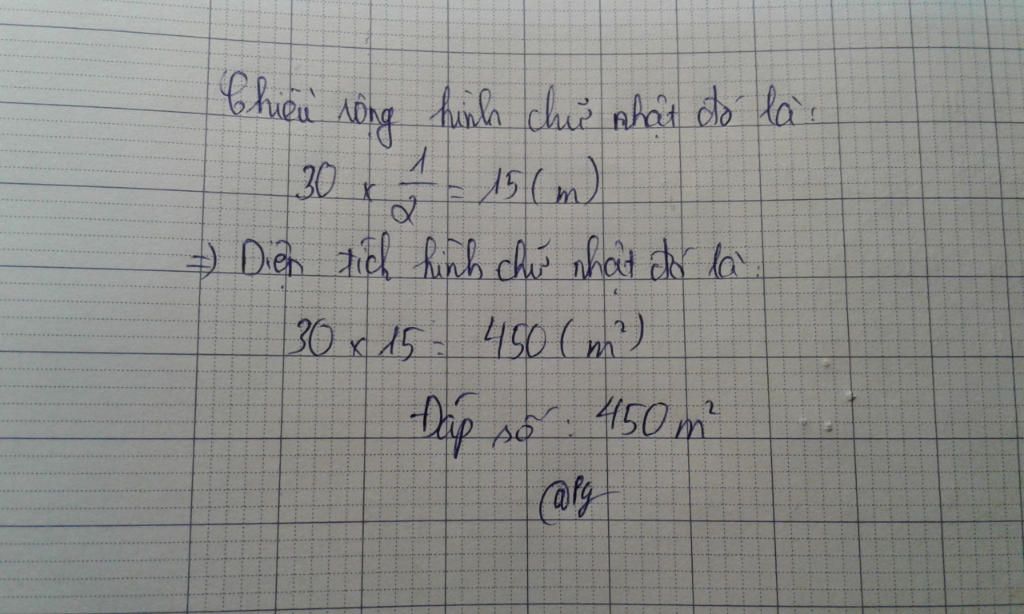 Chiều rộng hình chữ nhật đó là:
30 × 1/2 = 15 (m)
=> Diện tích hình chữ nhật đó là:
30 × 15 = 450 (m²)
Đáp số : 450 m²
@Pg